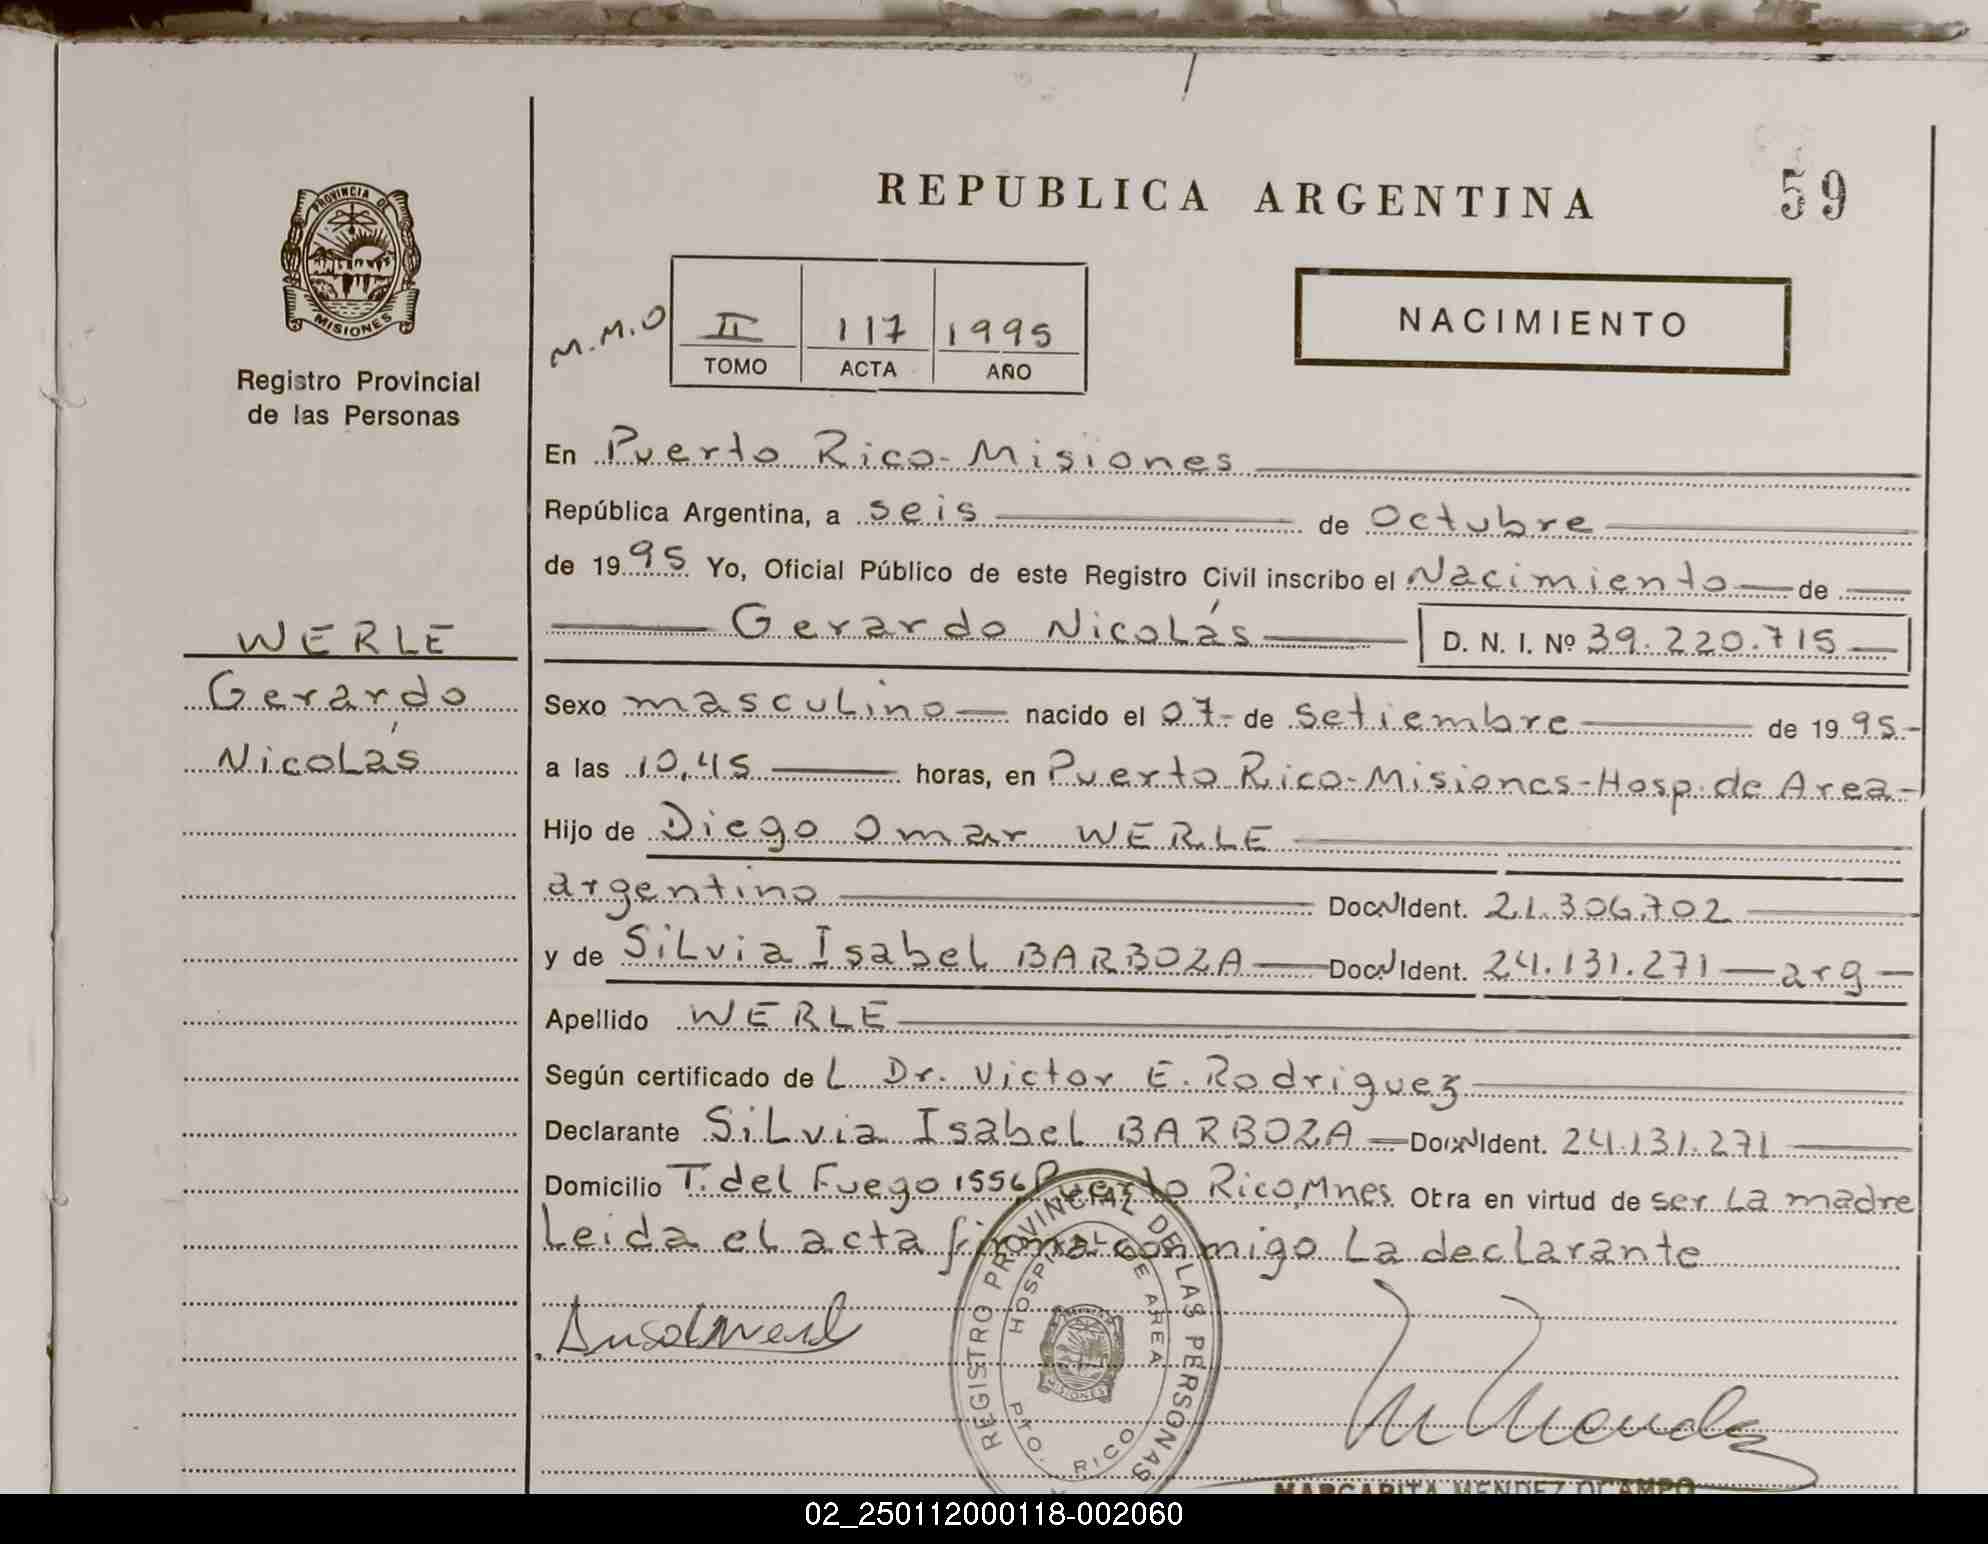 REPUBLICA ARGENTINA
59
PROVINCIA DE
MISIONES
Registro Provincial
de las Personas
M.M.O
II 117 1995
TOMO ACTA AÑO
NACIMIENTO
En Puerto Rico-Misiones
República Argentina, a seis de Octubre
de 1995 Yo, Oficial Público de este Registro Civil inscribo el Nacimiento de
Gerardo Nicolás D. N. I. Nº 39.220.715
WERLE
Gerardo
Nicolás
Sexo masculino nacido el 07 de Setiembre de 1995
a las 10,45 horas, en Puerto Rico-Misiones-Hosp. de Area-
Hijo de Diego Omar WERLE
argentino Doc. Ident. 21.306.702
y de Silvia Isabel BARBOZA Doc. Ident. 24.131.271 arg
Apellido WERLE
Según certificado de L Dr. Victor E. Rodriguez
Declarante Silvia Isabel BARBOZA Doc. Ident. 24.131.271
Domicilio T. del Fuego 1556 Puerto Rico, Mnes. Otra en virtud de ser La madre
Leida el acta firma conmigo La declarante
REGISTRO PROVINCIAL DE LAS PERSONAS
HOSPITAL DE AREA
PTO. RICO
MISIONES
MARGARITA MENDEZ OCAMPO
02_250112000118-002060